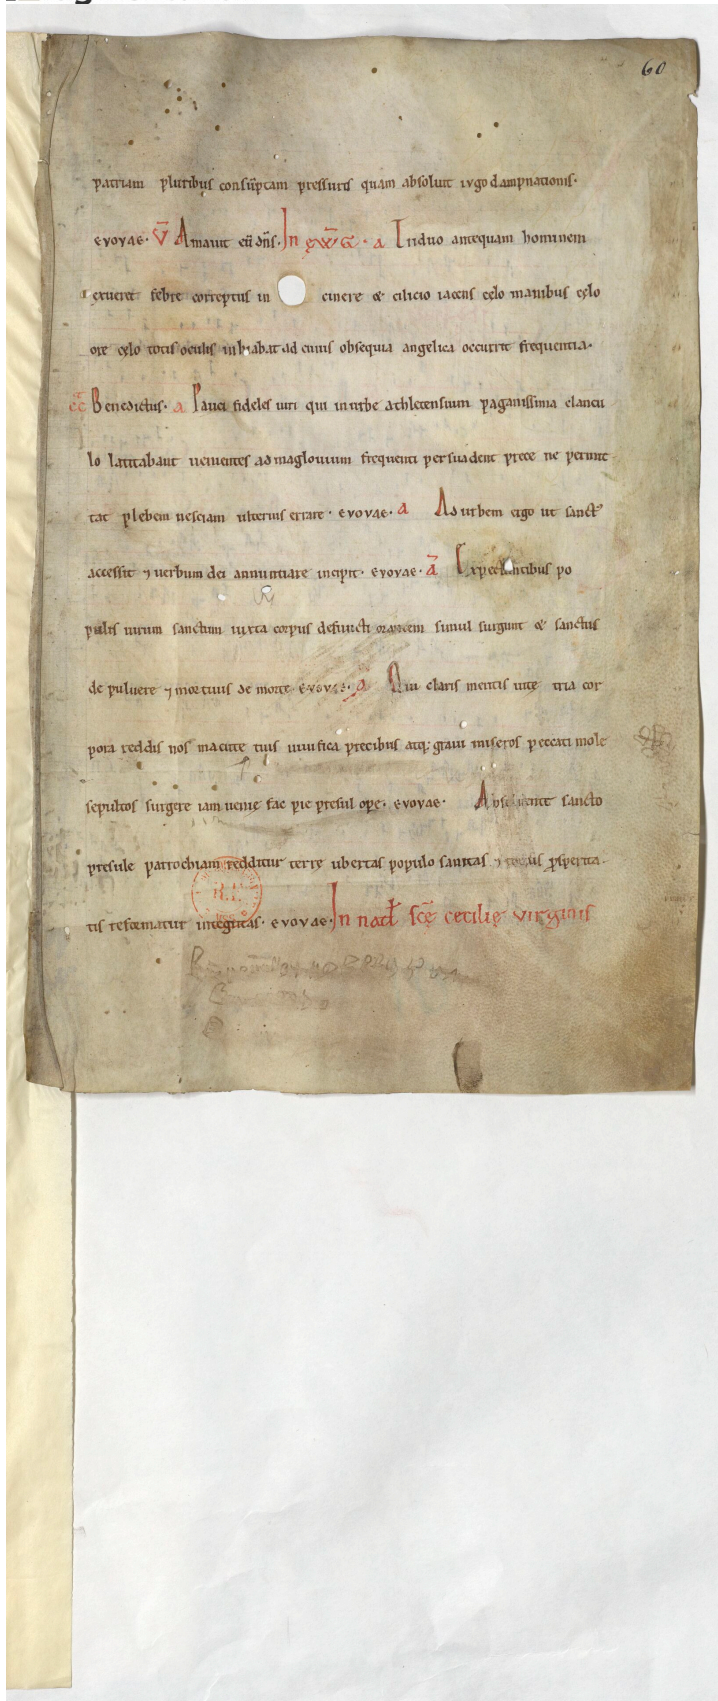 60
patriam pluribus consũptam pressuris quam absoluit iugo dampnationis·
evovae· V̄ Amauit eũ dñs· In ęw̄ḡ· a Triduo antequam hominem
exueret febre correptus in cinere & cilicio iacens cęlo manibus cęlo
ore cęlo totis oculis inhiabat ad cuius obsequia angelica occurrit frequentia·
Benedictus· a Pauci fideles uiri qui in urbe athletensium paganissima clancu
lo latitabant uenientes ad maglouium frequenti persuadent prece ne permit
tat plebem nesciam ulterius errare· evovae· a Ad urbem ergo ut sanct9
accessit ⁊ uerbum dei annuntiare incipit· evovae· ā Expectantibus po
pulis uirum sanctum iuxta corpus defuncti orantem simul surgunt & sanctus
de puluere ⁊ mortuus de morte evovae· a Qui claris meritis uite tria cor
pora reddis nos macute tuis uiuifica precibus atq; graui miseros peccati mole
sepultos surgere iam uenie fac pie presul ope· evovae· Absoluente sancto
presule parrochiam redditur terrę ubertas populo sanitas ⁊ totius ꝓsperita·
tis reformatur integritas· evovae· In natł scę cecilię virginis